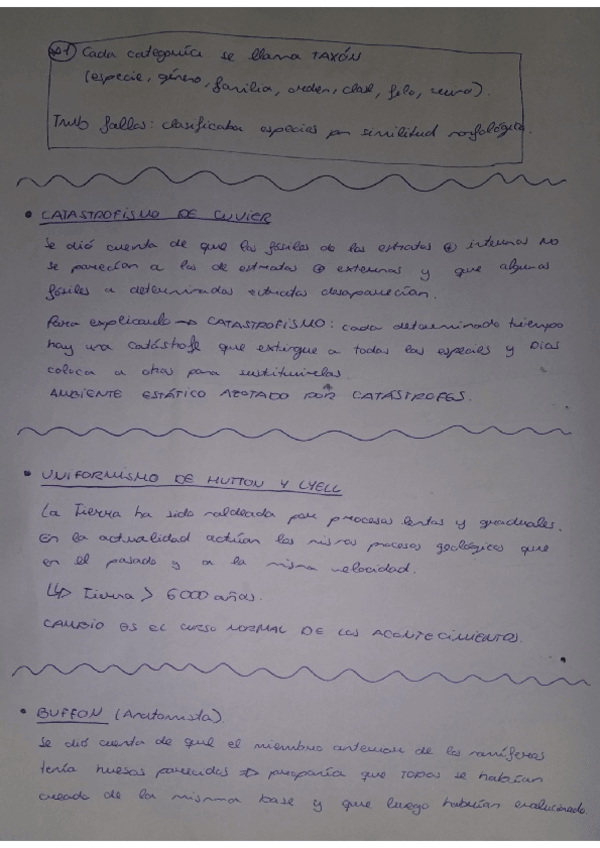 Cada categoría se llama TAXÓN
(especie, género, familia, orden, clase, filo, reino).
Tuvo fallos: clasificaba especies por similitud morfológica.
• CATASTROFISMO DE CUVIER
Se dió cuenta de que los fósiles de los estratos ⊕ internos NO
se parecían a los de estratos ⊕ externos y que algunos
fósiles a determinados estratos desaparecían.
Para explicarlo → CATASTROFISMO: cada determinado tiempo
hay una catástrofe que extingue a todas las especies y Dios
coloca a otras para sustituirlas.
AMBIENTE ESTÁTICO AZOTADO POR CATÁSTROFES.
• UNIFORMISMO DE HUTTON Y LYELL
La Tierra ha sido moldeada por procesos lentos y graduales.
En la actualidad actúan los mismos procesos geológicos que
en el pasado y a la misma velocidad.
↳ Tierra > 6000 años.
CAMBIO ES EL CURSO NORMAL DE LOS ACONTECIMIENTOS.
• BUFFON (Anatomista)
Se dió cuenta de que el miembro anterior de los mamíferos
tenía huesos parecidos ⇒ proponía que TODOS se habían
creado de la misma base y que luego habían evolucionado.